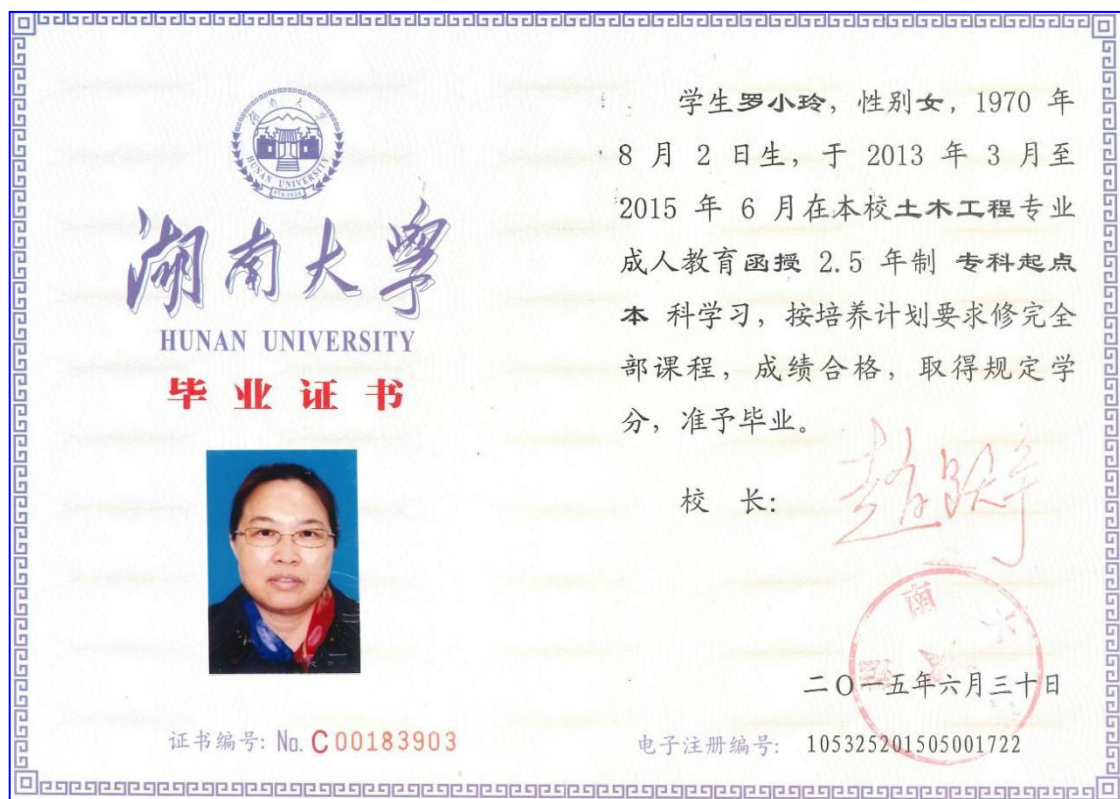 湖南大学
HUNAN UNIVERSITY
湖南大学
HUNAN UNIVERSITY
毕业证书
证书编号: No. C 00183903
学生罗小玲，性别女，1970 年
8 月 2 日生，于 2013 年 3 月至
2015 年 6 月在本校土木工程专业
成人教育函授 2.5 年制 专科起点
本 科学习，按培养计划要求修完全
部课程，成绩合格，取得规定学
分，准予毕业。
校 长：
二〇一五年六月三十日
电子注册编号: 105325201505001722